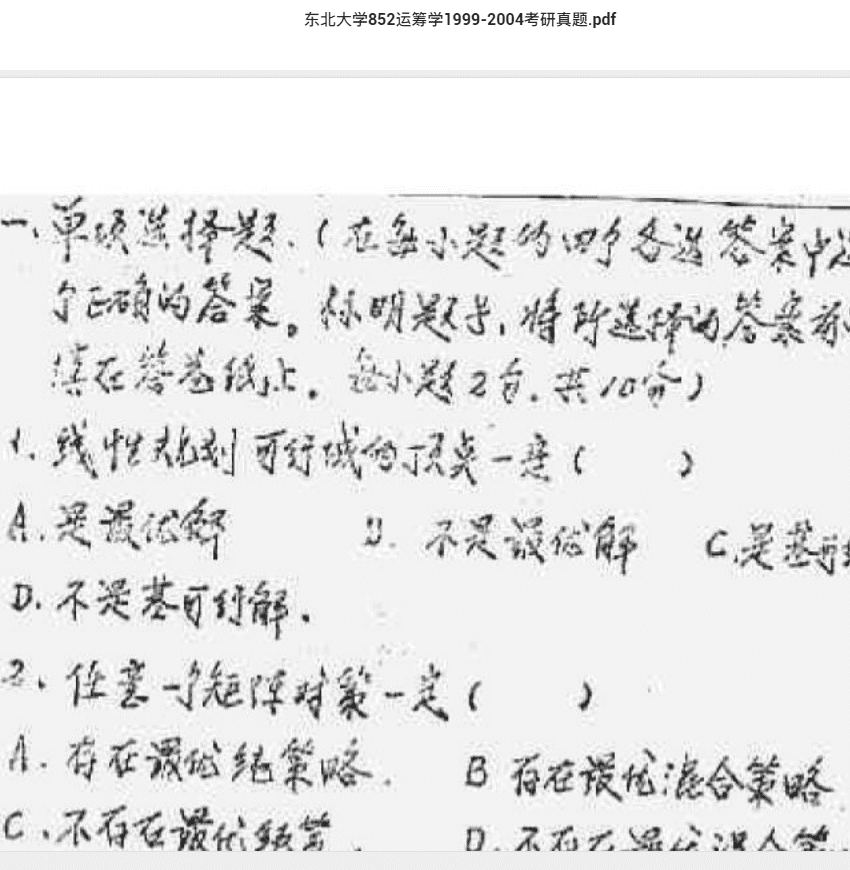 东北大学852运筹学1999-2004考研真题.pdf
一、单项选择题.(在每小题的四个备选答案中选
个正确的答案。标明题号,将所选择的答案
填在答卷纸上。每小题2分.共10分)
1.线性规划可行域的顶点一定(  )
A.是最优解 B.不是最优解 C.是基可
D.不是基可行解.
2、任意一个矩阵对策一定(  )
A.存在最优纯策略. B 存在最优混合策略
C、不存在最优纯策 D.不存在最优混合策